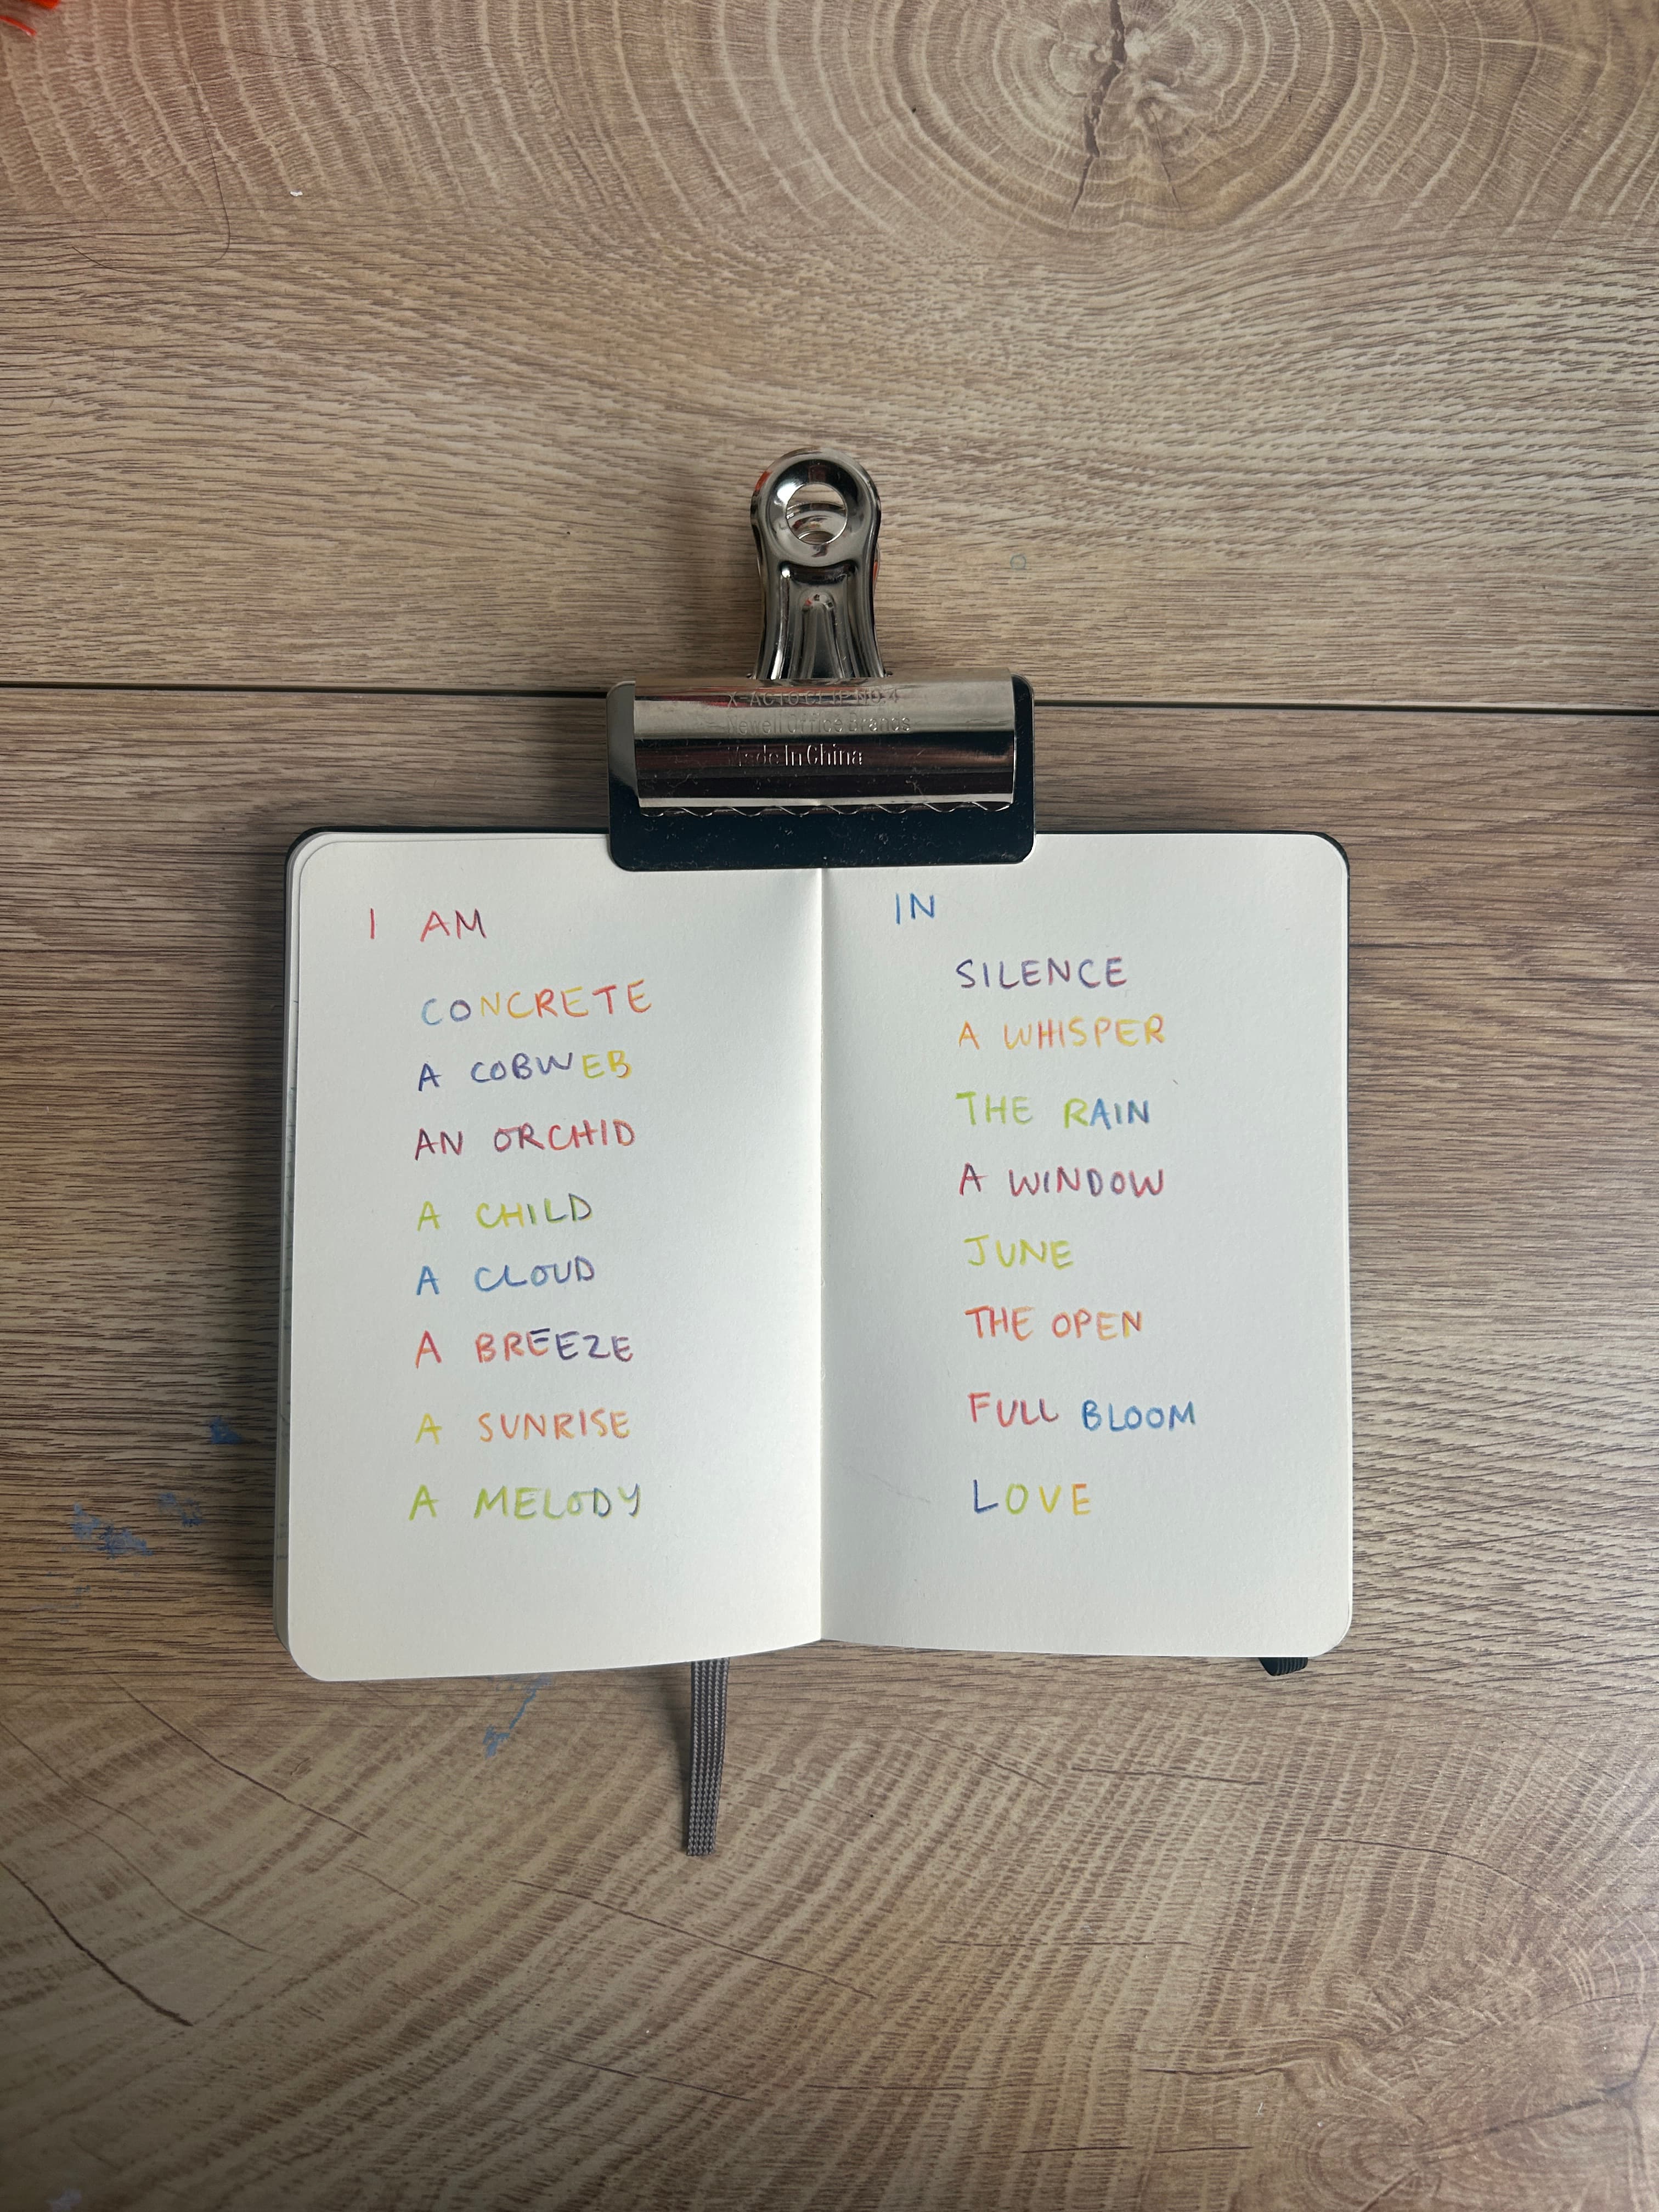 X-ACTO CLIP NO.4
Newell Office Brands
Made In China
I AM
CONCRETE
A COBWEB
AN ORCHID
A CHILD
A CLOUD
A BREEZE
A SUNRISE
A MELODY
IN
SILENCE
A WHISPER
THE RAIN
A WINDOW
JUNE
THE OPEN
FULL BLOOM
LOVE